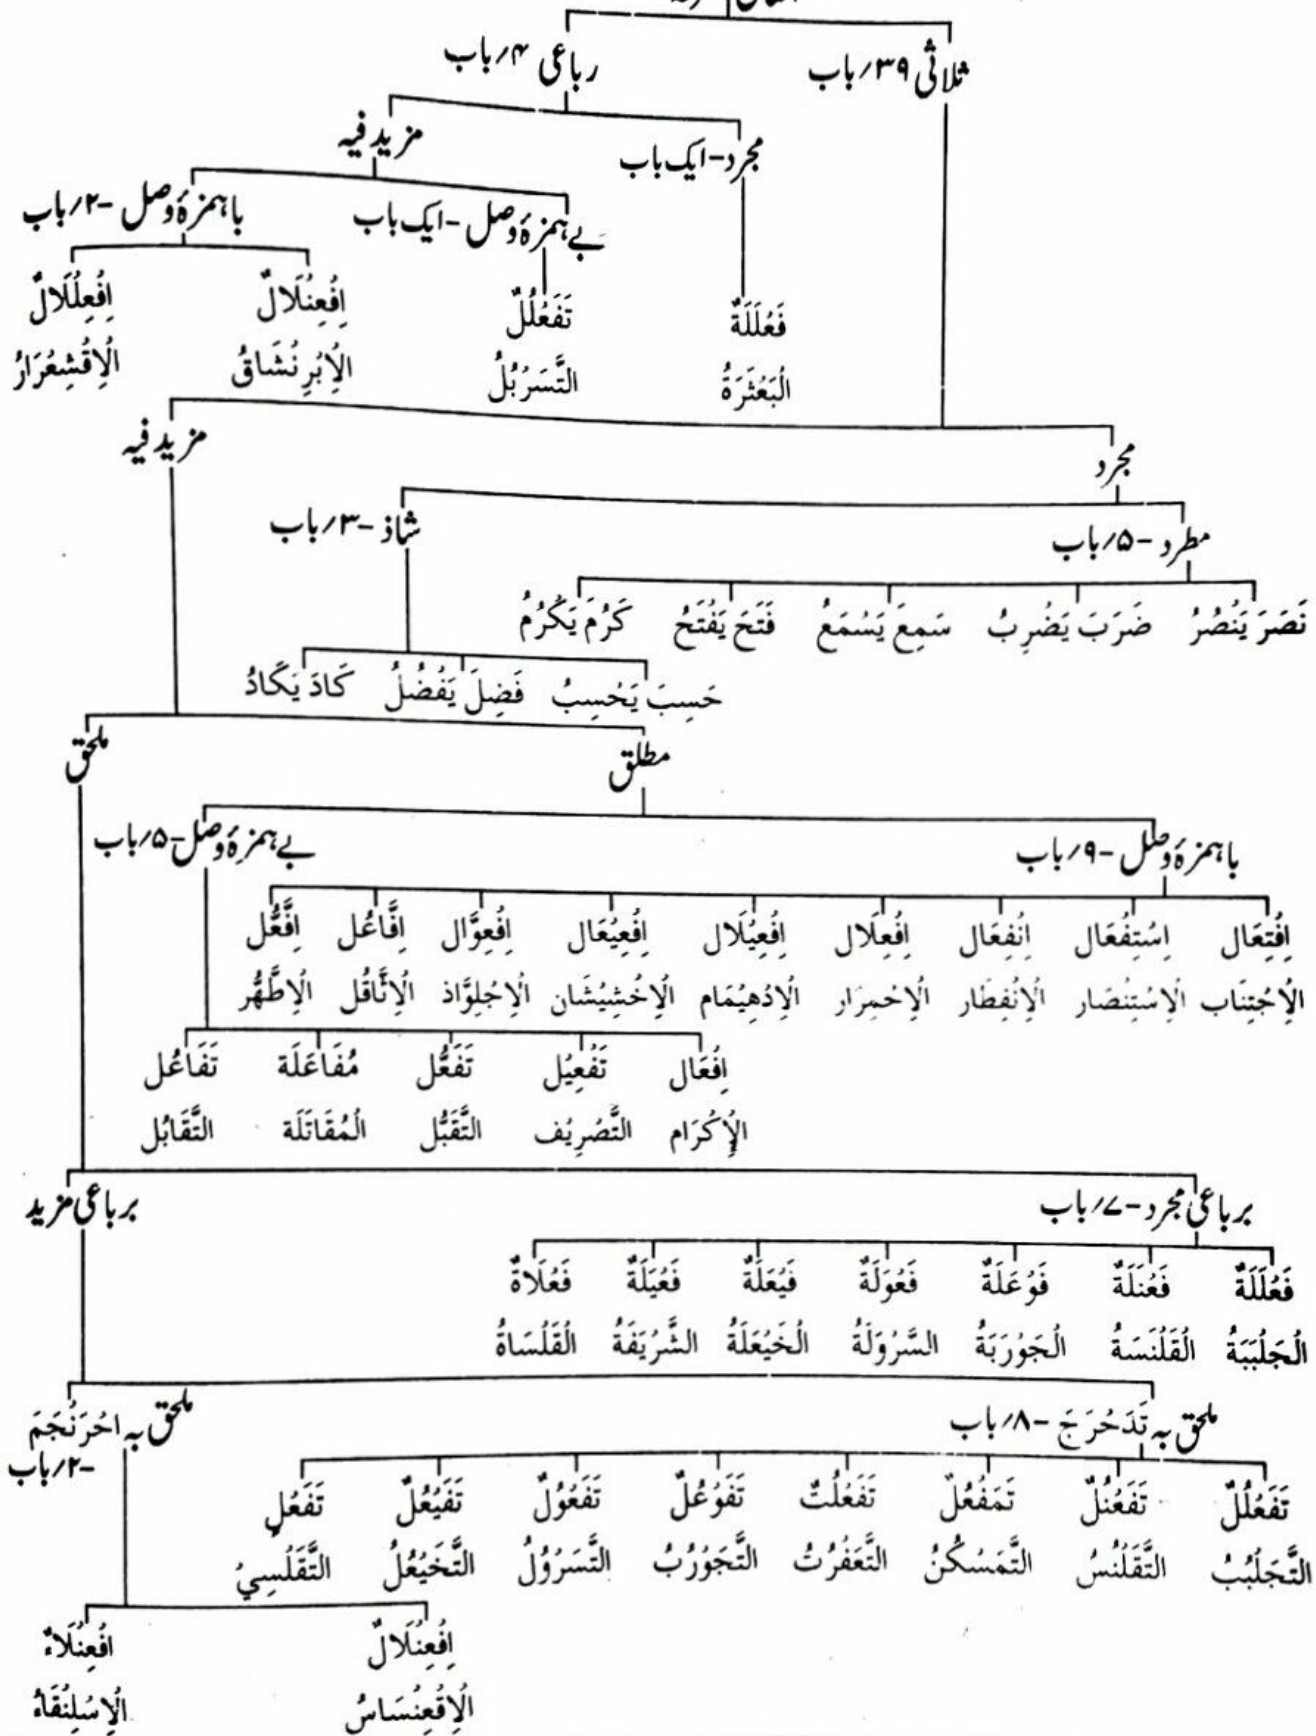 ثلاثی ۳۹؍باب رباعی ۴؍باب
مجرد-ایک باب مزید فیہ
بے ہمزۂ وصل-ایک باب باہمزۂ وصل-۲؍باب
فَعْلَلَةٌ تَفَعْلُلٌ اِفْعِنْلَالٌ اِفْعِلْلَالٌ
الْبَعْثَرَةُ التَّسَرْبُلُ الْاِبْرِنْشَاقُ الْاِقْشِعْرَارُ
مجرد مزید فیہ
مطرد-۵؍باب شاذ-۳؍باب
نَصَرَ يَنْصُرُ ضَرَبَ يَضْرِبُ سَمِعَ يَسْمَعُ فَتَحَ يَفْتَحُ كَرُمَ يَكْرُمُ
حَسِبَ يَحْسِبُ فَضِلَ يَفْضُلُ كَادَ يَكَادُ
مطلق ملحق
باہمزۂ وصل-۹؍باب بے ہمزۂ وصل-۵؍باب
اِفْتِعَال اِسْتِفْعَال اِنْفِعَال اِفْعِلَال اِفْعِيْلَال اِفْعِيْعَال اِفْعِوَّال اِفَّاعُل اِفَّعُّل
الْاِجْتِنَاب الْاِسْتِنْصَار الْاِنْفِطَار الْاِحْمِرَار الْاِدْهِيْمَام الْاِخْشِيْشَان الْاِجْلِوَّاذ الْاِثَّاقُل الْاِطَّهُّر
اِفْعَال تَفْعِيْل تَفَعُّل مُفَاعَلَة تَفَاعُل
الْاِكْرَام التَّصْرِيْف التَّقَبُّل الْمُقَاتَلَة التَّقَابُل
برباعی مجرد-۷؍باب برباعی مزید
فَعْلَلَةٌ فَعْنَلَةٌ فَوْعَلَةٌ فَعْوَلَةٌ فَيْعَلَةٌ فَعْيَلَةٌ فَعْلَاةٌ
الْجَلْبَبَةُ الْقَلْنَسَةُ الْجَوْرَبَةُ السَّرْوَلَةُ الْخَيْعَلَةُ الشَّرْيَفَةُ الْقَلْسَاةُ
ملحق بہ تَدَحْرَجَ-۸؍باب ملحق بہ احْرَنْجَمَ
-۲؍باب
تَفَعْلُلٌ تَفَعْنُلٌ تَمَفْعُلٌ تَفَعْلُتٌ تَفَوْعُلٌ تَفَعْوُلٌ تَفَيْعُلٌ تَفَعْلٍ
التَّجَلْبُبُ التَّقَلْنُسُ التَّمَسْكُنُ التَّعَفْرُتُ التَّجَوْرُبُ التَّسَرْوُلُ التَّخَيْعُلُ التَّقَلْسِيُ
اِفْعِنْلَالٌ افْعِنْلَاءٌ
الْاِقْعِنْسَاسُ الْاِسْلِنْقَاءُ